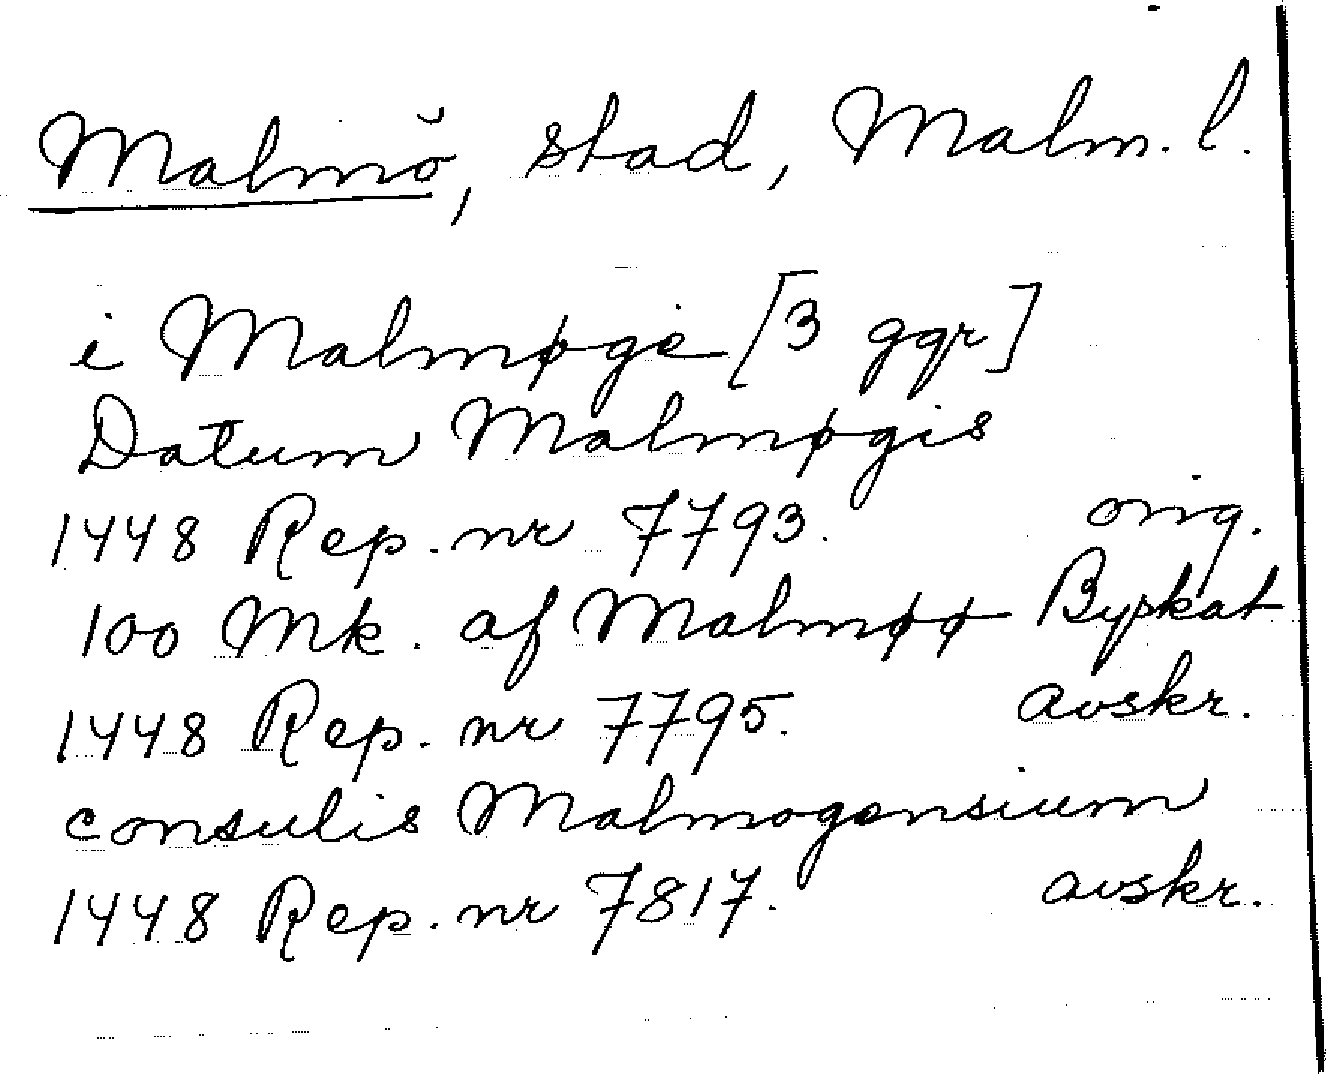 Malmö, stad, Malm. l.
i Malmøge [3 ggr]
Datum Malmøgis
1448 Rep. nr 7793. orig.
100 Mk. af Malmøø Byskat
1448 Rep. nr 7795. avskr.
consulis Malmogensium
1448 Rep. nr 7817. avskr.